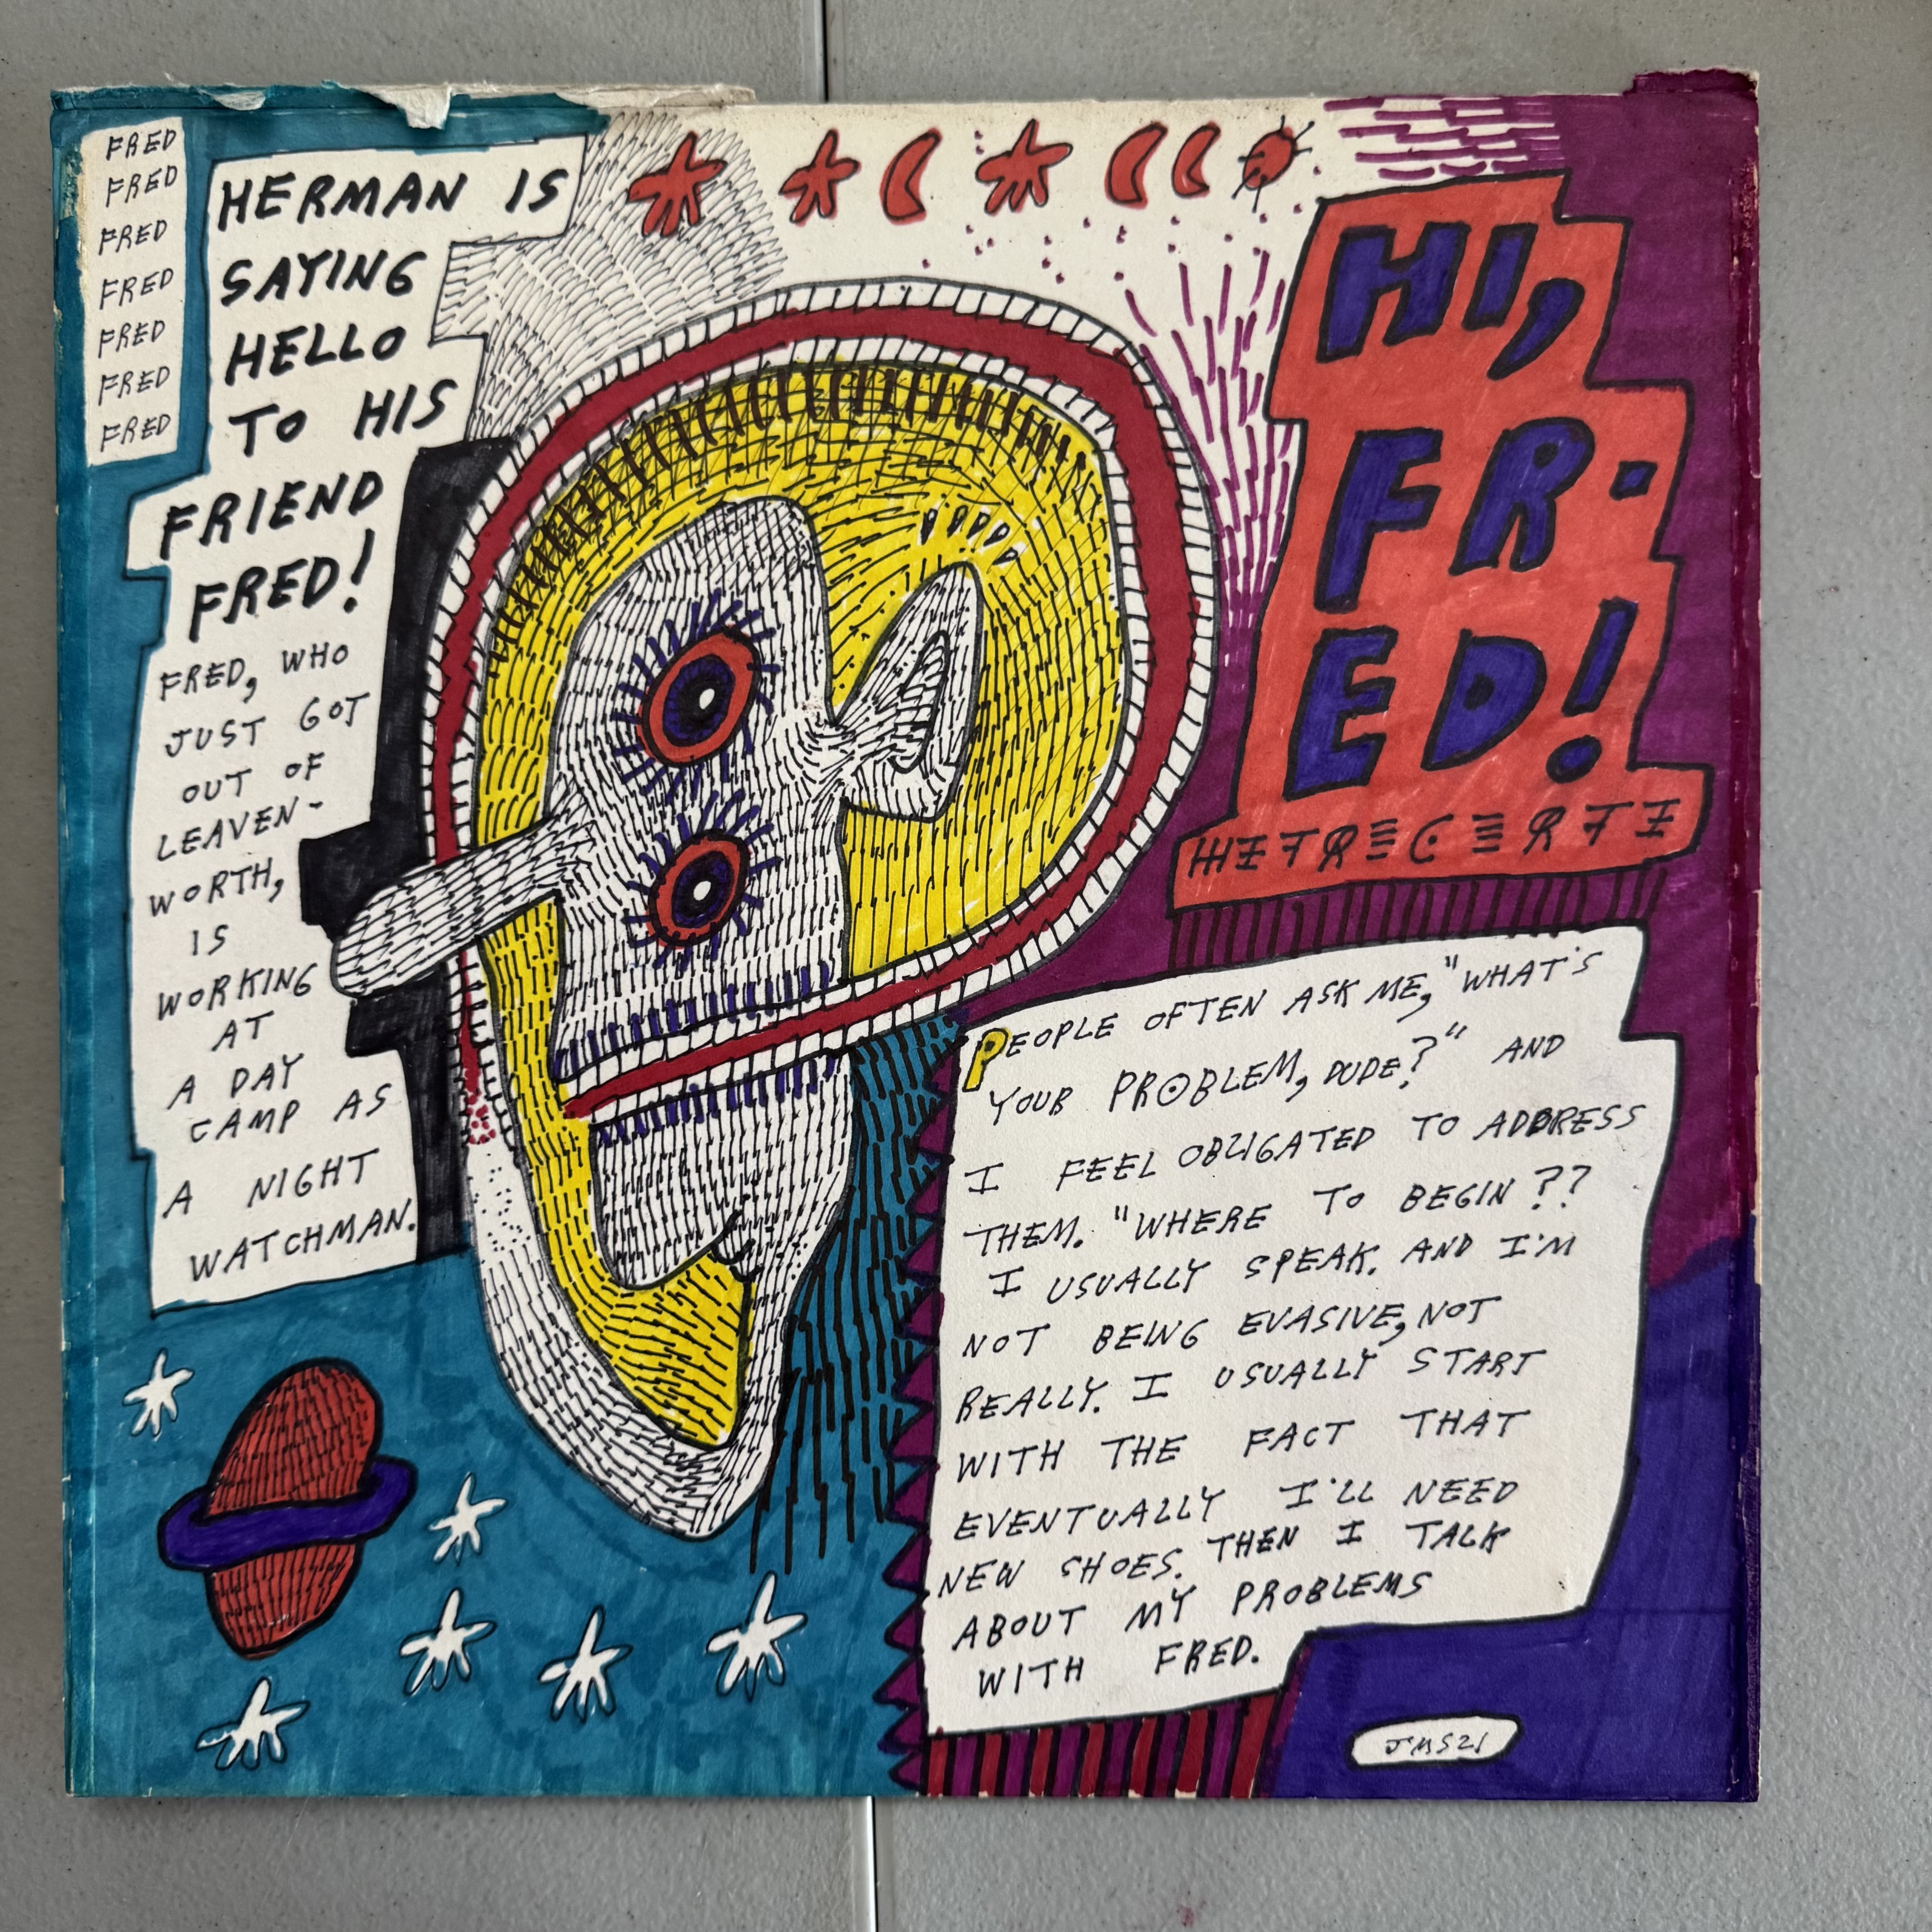 FRED
FRED
FRED
FRED
FRED
FRED
FRED
HERMAN IS
SAYING
HELLO
TO HIS
FRIEND
FRED!
FRED, WHO
JUST GOT
OUT OF
LEAVEN-
WORTH,
IS
WORKING
AT
A DAY
CAMP AS
A NIGHT
WATCHMAN.
HI,
FR.
ED!
PEOPLE OFTEN ASK ME, "WHAT'S
YOUR PROBLEM, DUDE?" AND
I FEEL OBLIGATED TO ADDRESS
THEM. "WHERE TO BEGIN ??
I USUALLY SPEAK. AND I'M
NOT BEING EVASIVE, NOT
REALLY. I USUALLY START
WITH THE FACT THAT
EVENTUALLY I'LL NEED
NEW SHOES. THEN I TALK
ABOUT MY PROBLEMS
WITH FRED.
JMS21